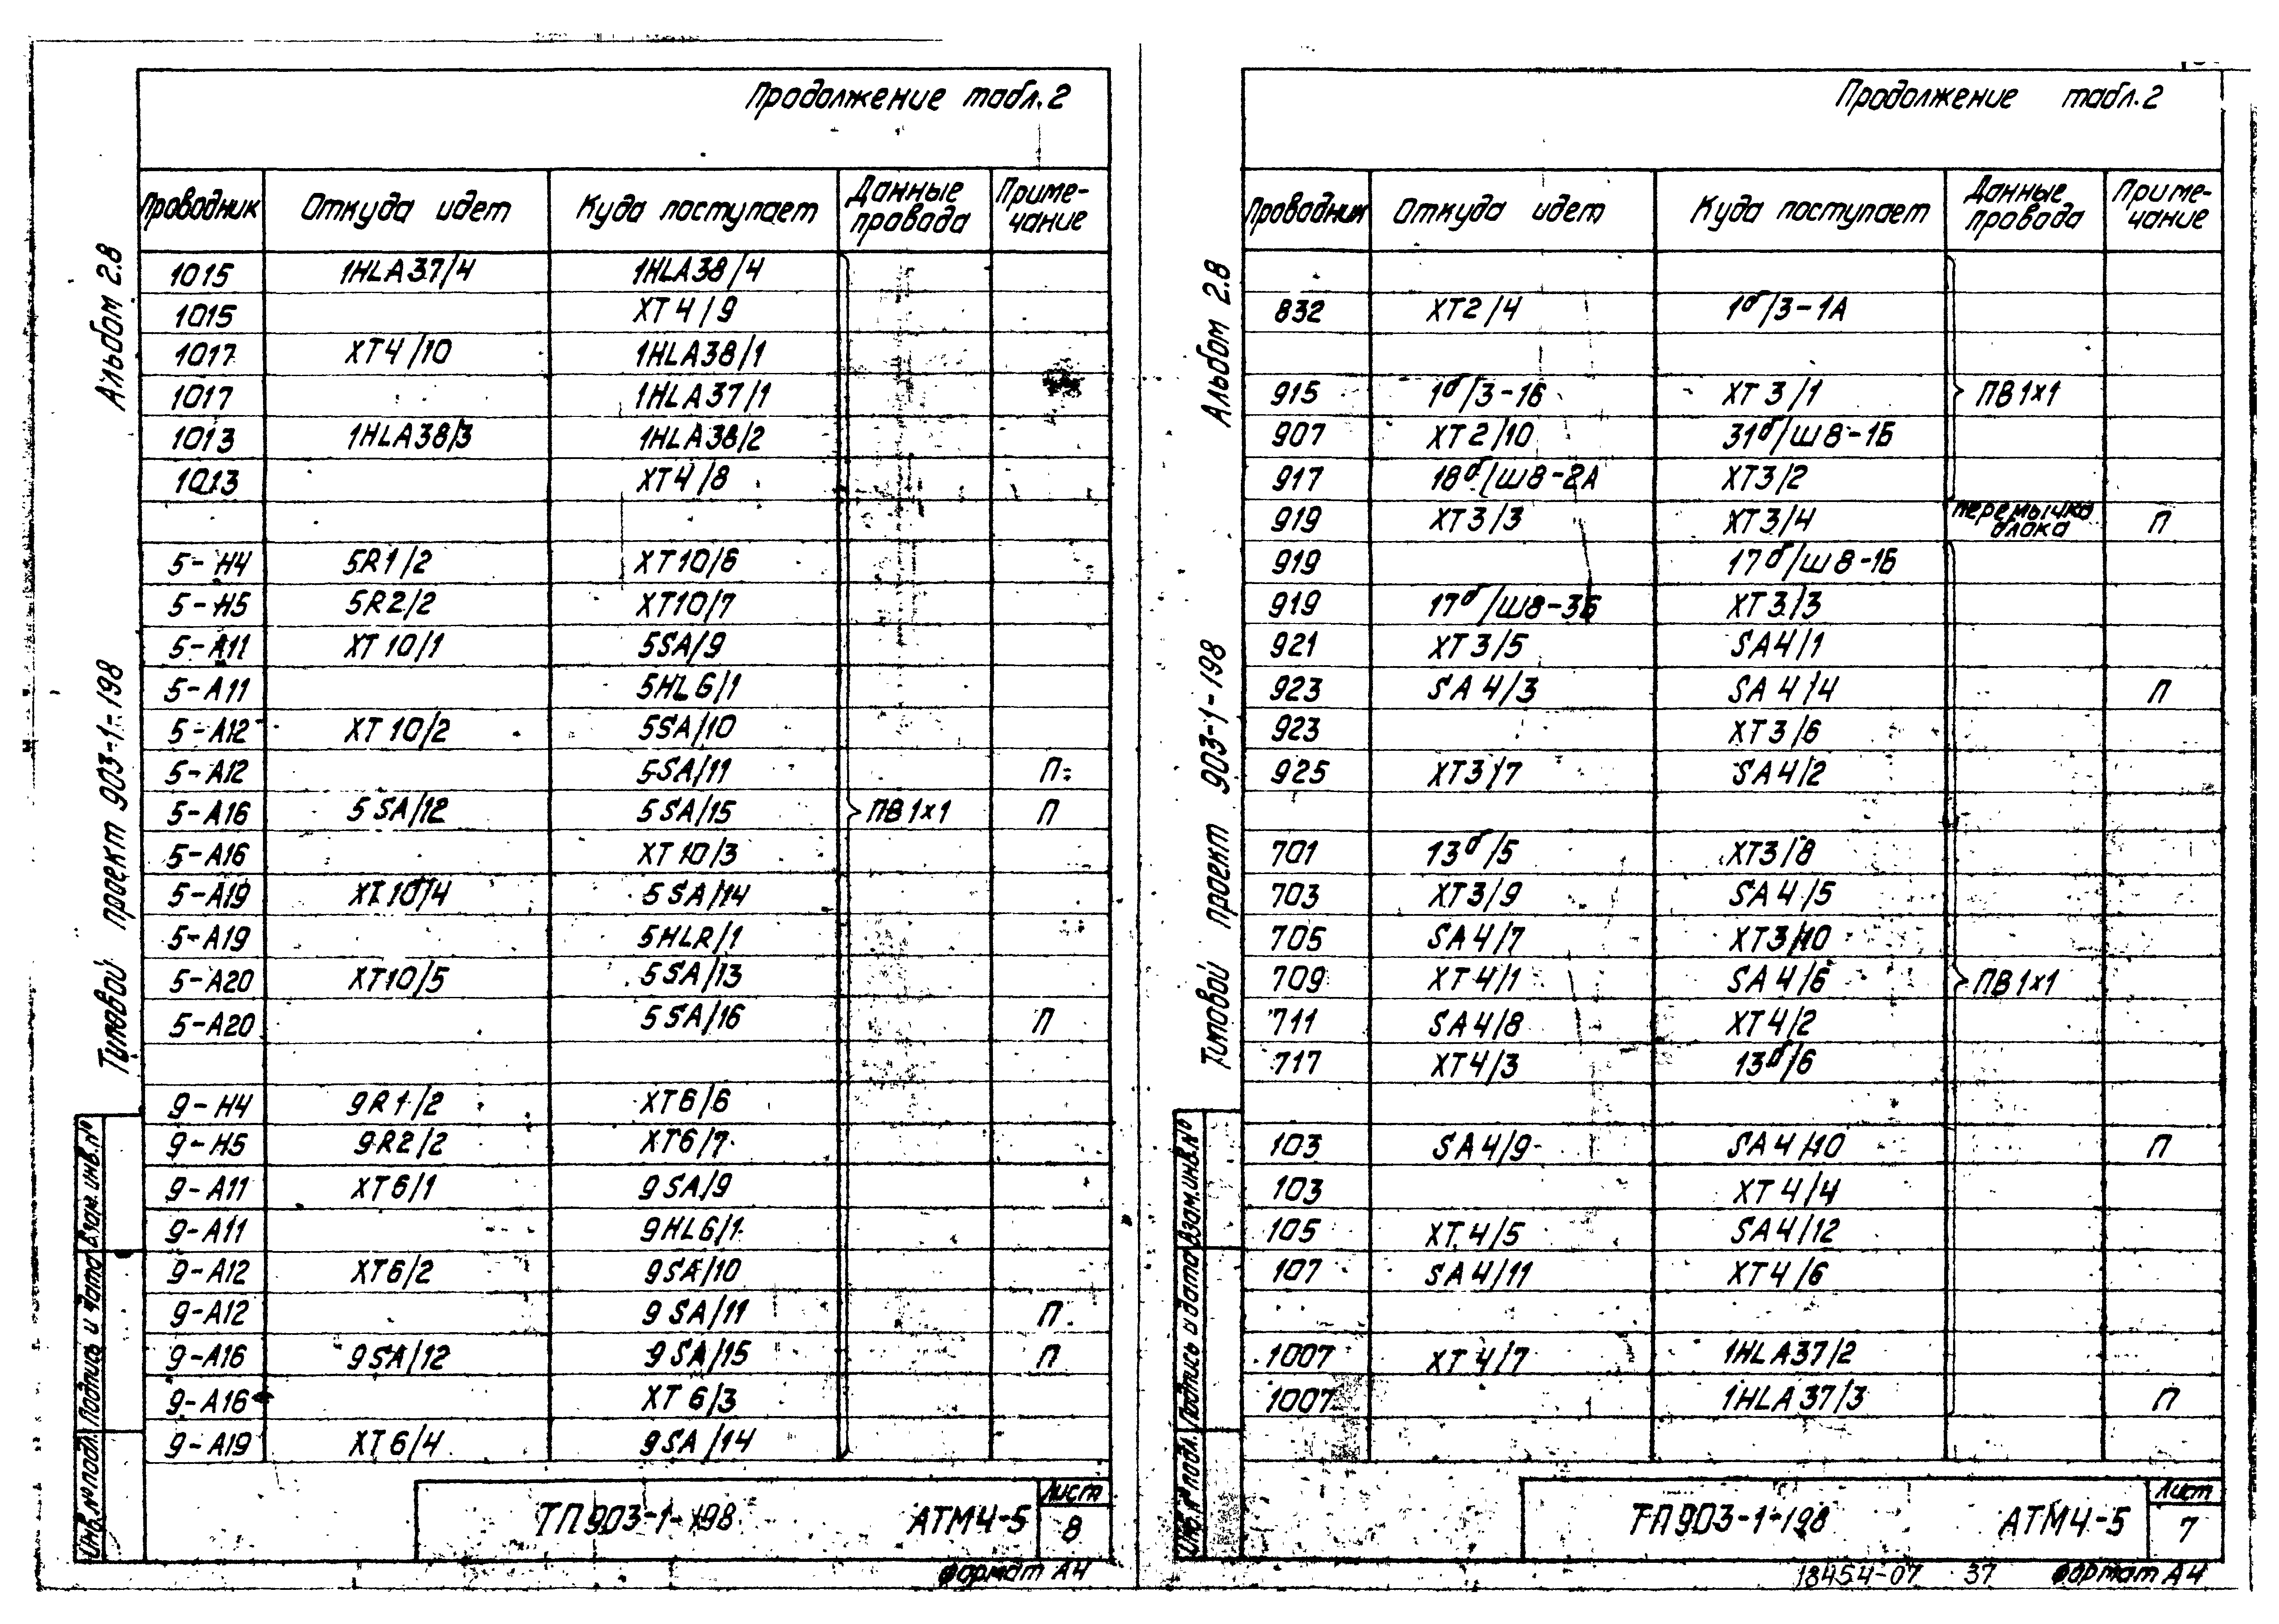 Продолжение табл.2
Проводник Откуда идет Куда поступает Данные провода Примечание
1015 1HLA37/4 1HLA38/4
1015 XT4/9
1017 XT4/10 1HLA38/1
1017 1HLA37/1
1013 1HLA38/3 1HLA38/2
1013 XT4/8
5-H4 5R1/2 XT10/6
5-H5 5R2/2 XT10/7
5-A11 XT10/1 5SA/9
5-A11 5HLG/1
5-A12 XT10/2 5SA/10
5-A12 5SA/11 П
5-A16 5SA/12 5SA/15 ПВ1х1 П
5-A16 XT10/3
5-A19 XT10/4 5SA/14
5-A19 5HLR/1
5-A20 XT10/5 5SA/13
5-A20 5SA/16 П
9-H4 9R1/2 XT6/6
9-H5 9R2/2 XT6/7
9-A11 XT6/1 9SA/9
9-A11 9HLG/1
9-A12 XT6/2 9SA/10
9-A12 9SA/11 П
9-A16 9SA/12 9SA/15 П
9-A16 XT6/3
9-A19 XT6/4 9SA/14
ТП903-1-198 АТМ4-5 Лист 8
Формат А4
Альбом 2.8
Типовой проект 903-1-198
Инв.№подл. Подпись и дата Взам.инв.№
Продолжение табл.2
Проводник Откуда идет Куда поступает Данные провода Примечание
832 XT2/4 1б/3-1А
915 1б/3-1б XT3/1 ПВ1х1
907 XT2/10 31б/Ш8-1Б
917 18б/Ш8-2А XT3/2
919 XT3/3 XT3/4 перемычка блока П
919 17б/Ш8-1Б
919 17б/Ш8-3Б XT3/3
921 XT3/5 SA4/1
923 SA4/3 SA4/4 П
923 XT3/6
925 XT3/7 SA4/2
701 13б/5 XT3/8
703 XT3/9 SA4/5
705 SA4/7 XT3/10
709 XT4/1 SA4/6 ПВ1х1
711 SA4/8 XT4/2
717 XT4/3 13б/6
103 SA4/9 SA4/10 П
103 XT4/4
105 XT4/5 SA4/12
107 SA4/11 XT4/6
1007 XT4/7 1HLA37/2
1007 1HLA37/3 П
ТП903-1-198 АТМ4-5 Лист 7
18454-07 37 Формат А4
Альбом 2.8
Типовой проект 903-1-198
Инв.№подл. Подпись и дата Взам.инв.№